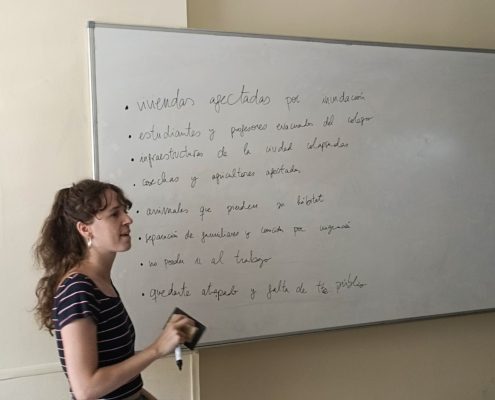 • viviendas afectadas por inundación
• estudiantes y profesores evacuados del colegio
• infraestructuras de la ciudad colapsadas
• cosechas y agricultores afectados
• animales que pierden su hábitat
• separación de familiares y por
• no poder ir al trabajo
• quedarte atrapado y falta de tte público